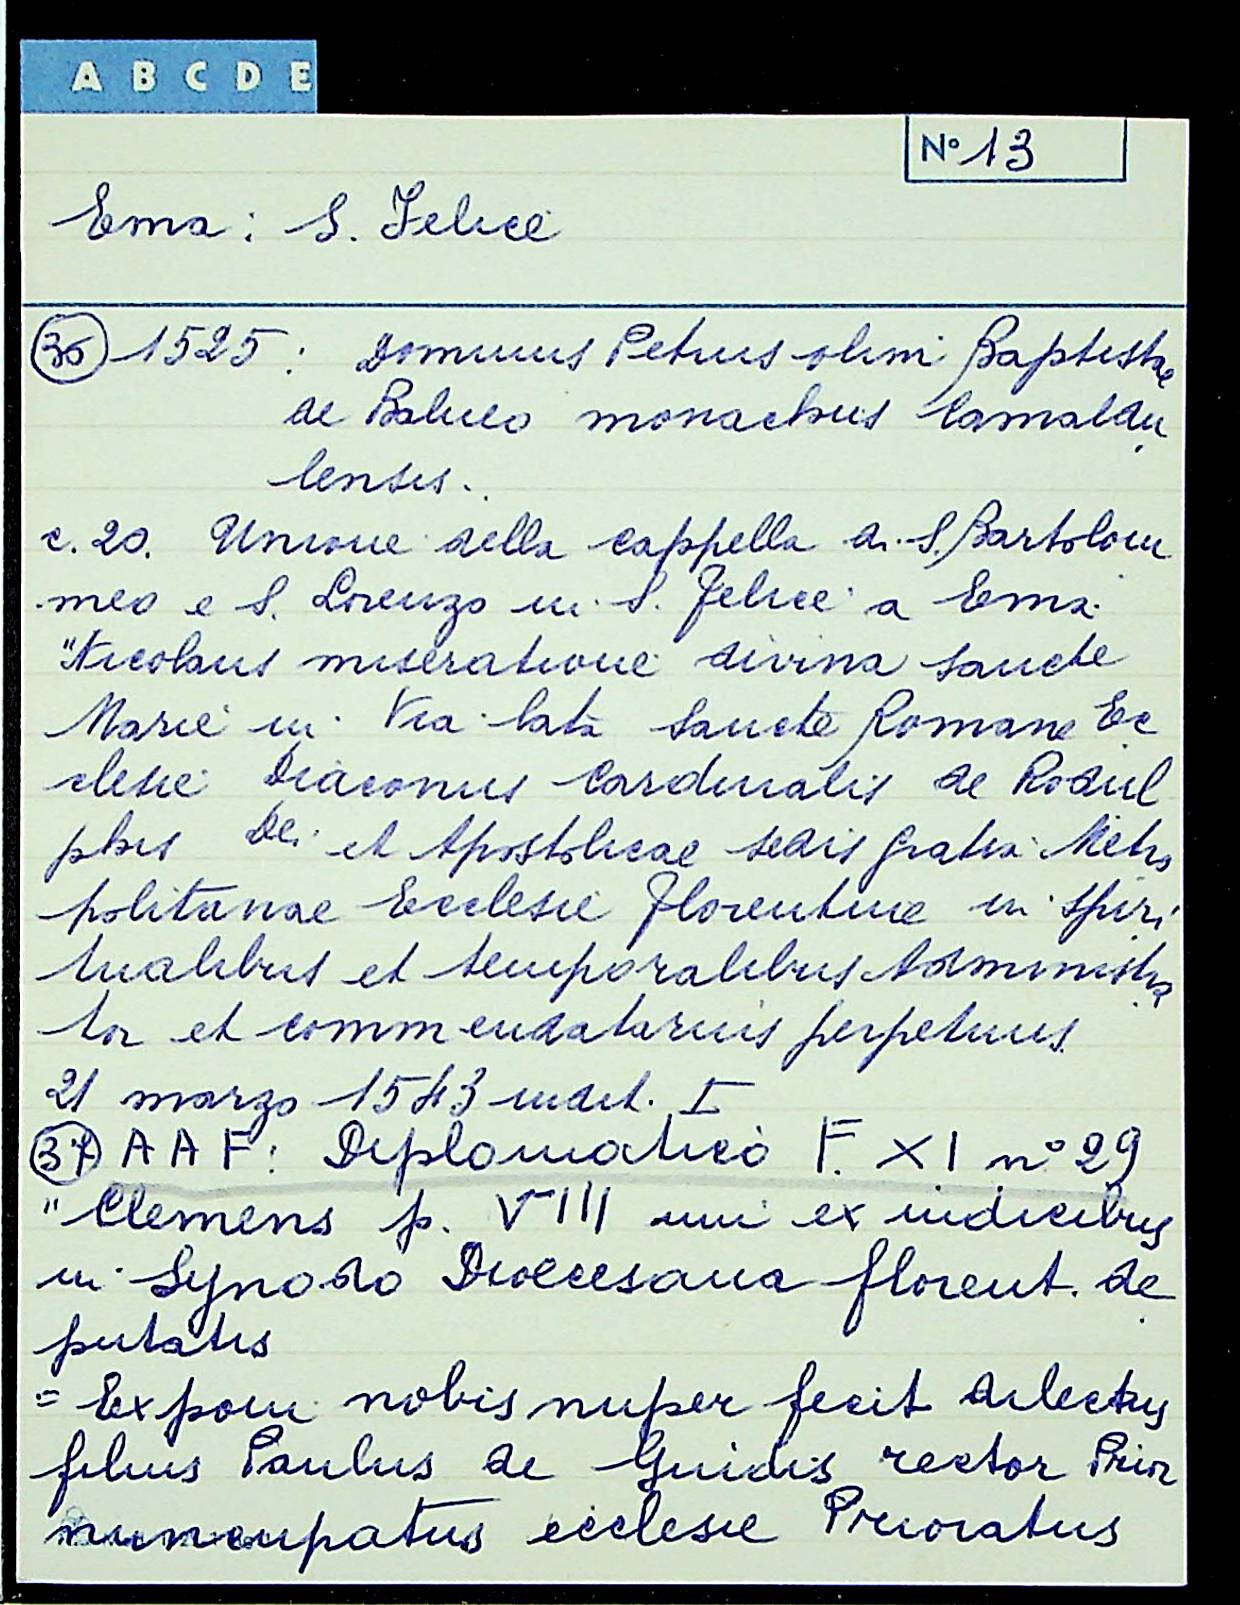 A B C D E
N° 13
Ema: S. Felice
36 1525: Dominus Petrus olim Baptistae
de monachus Camaldu
lensis.
c. 20. Unione della cappella di S. Bartolom
meo e S. Lorenzo in S. Felice a Ema
"Nicolaus miseratione divina Sancte
Marie in Via lata Sancte Romane Ec
clesie Diaconus Cardinalis de Rodul
phis Dei et Apostolicae sedis gratia Metro
politanae Ecclesie Florentine in spiri
tualibus et temporalibus Administra
tor et commendatarius perpetuus.
21 marzo 1543 indit. I
37 A A F: Diplomatico F. XI n° 29
"Clemens p. VIII uni ex iudicibus
in Synodo Dioecesana florent. de
putatis
= Exponi nobis nuper fecit dilectus
filius Paulus de Guidis rector Prior
nuncupatus ecclesie Prioratus